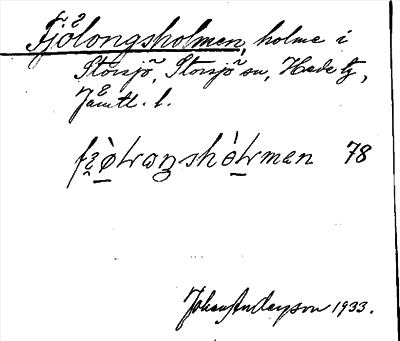 Fjolongsholmen, holme i
Storsjö, Storsjö sn, Hede tg,
Jämtl. l.
78
Johan Anderson 1933.